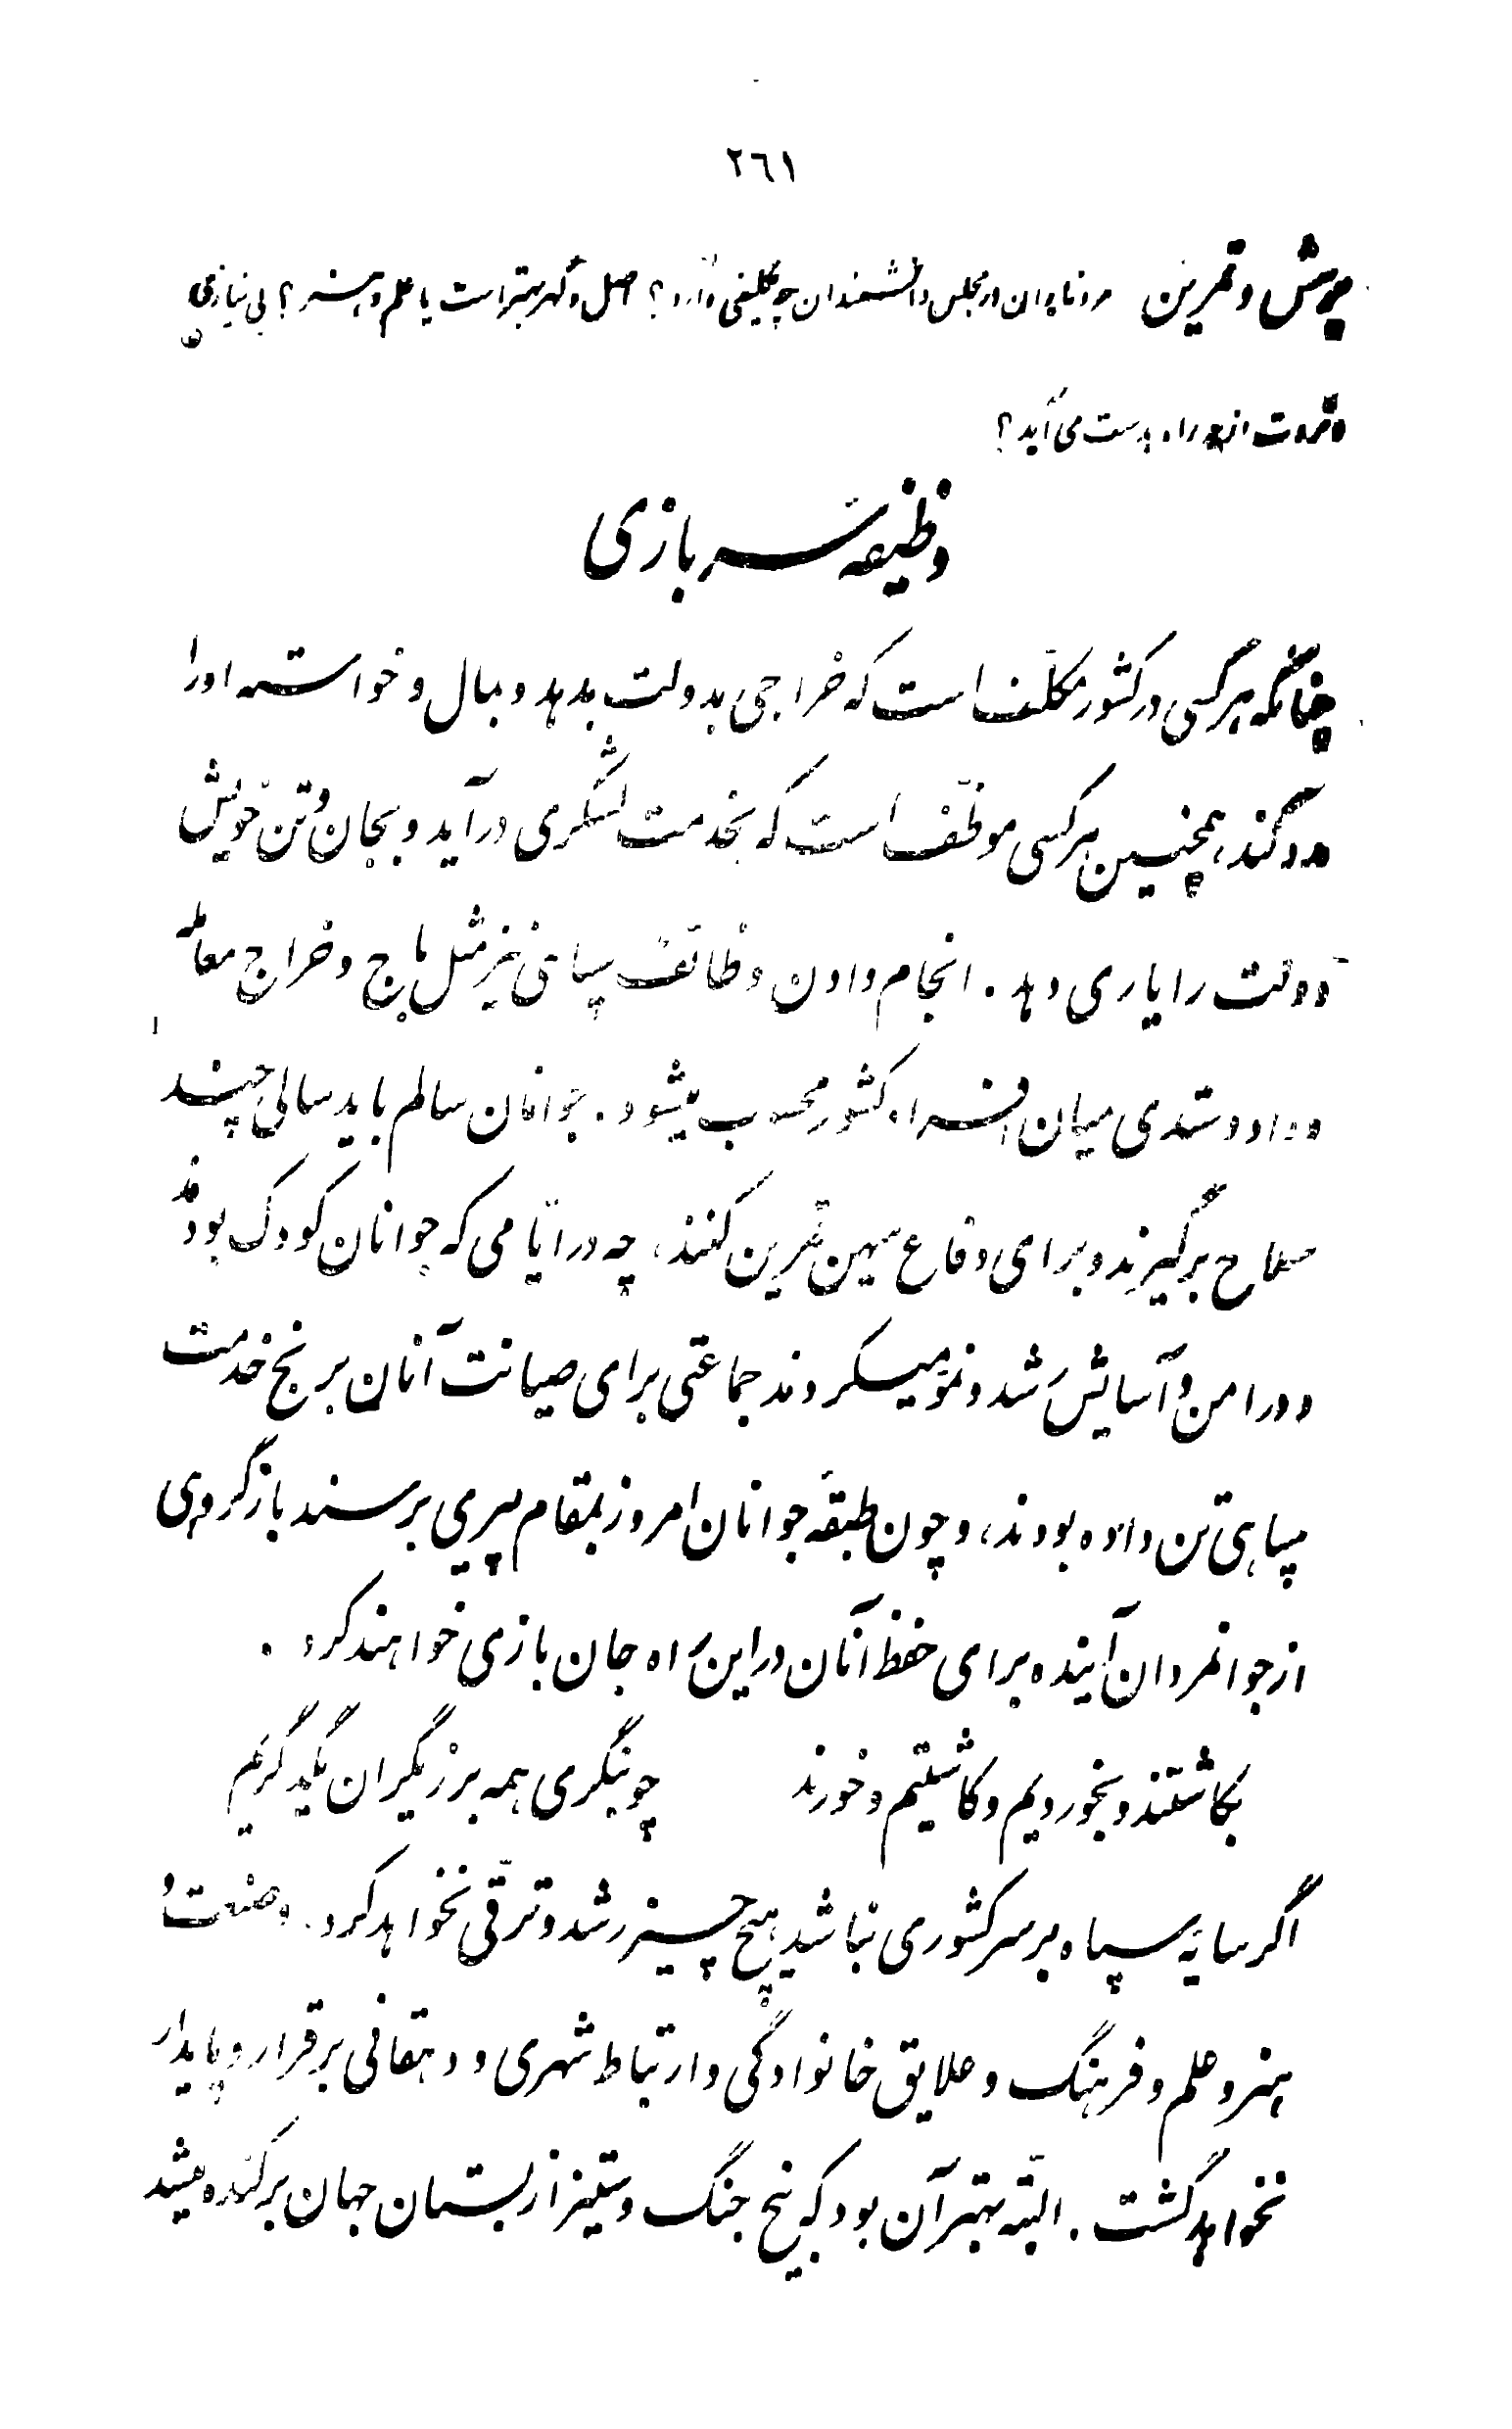 ٢٦١
پرسش و تمرین مرد نادان در مجلس دانشمندان چه تکلیفی دارد؟ اصل و گهر بهتر است یا علم و هنر؟ بی نیازی
و ثروت از چه راه بدست می آید؟
وظیفهٔ سربازی
چنانکه هر کسی در کشور مکلّف است که خراجی بدولت بدهد و بمال و خواسته او را
مدد کند، همچنین هر کسی موظّف است که بخدمت لشگری در آید و بجان و تن خویش
دولت را یاری دهد. انجام دادن وظائف سپاهی نیز مثل باج و خراج معامله
و داد و ستدی میان افراد کشور محسوب میشود. جوانان سالم باید سالی چند
سلاح برگیرند و برای دفاع میهن تمرین کنند، چه در ایّامی که جوانان کودک بودند
و در امن و آسایش رشد و نموّ میکردند جماعتی برای صیانت آنان برنج خدمت
سپاهی تن داده بودند، و چون طبقهٔ جوانان امروز بمقام پیری برسند باز گروهی
از جوانمردان آینده برای حفظ آنان در این راه جان بازی خواهند کرد.
بکاشتند و بخوردیم و کاشتیم و خورند چو بنگری همه برزیگران یکدگریم
اگر سایهٔ سپاه بر سر کشوری نباشد هیچ چیز رشد و ترقّی نخواهد کرد. و صنعت و
هنر و علم و فرهنگ و علایق خانوادگی و ارتباط شهری و دهقانی برقرار و پایدار
نخواهد گشت. البتّه بهتر آن بود که بیخ جنگ و ستیز از بستان جهان برکنده میشد